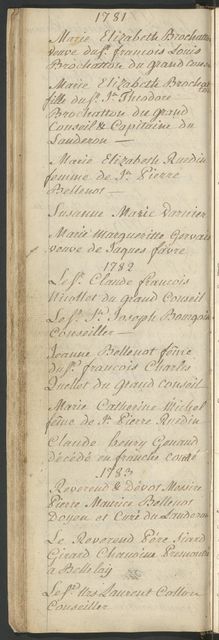 1781
Marie Elizabeth Brochatton
veuve du Sr. francois Louis
Brochatton du grand conseil
Marie Elizabeth Brochatton
fille du Sr. Jn. Theodore
Brochatton du grand
Conseil & Capitaine du
Landeron
Marie Elizabeth Ruedin
femme de Sr. Pierre
Bellenot
Susanne Marie Varnier
Marie Margueritte Gervais
veuve de Jaques favre
1782
Le Sr. Claude francois
Nicollet du grand Conseil
Le Sr. Jn. Joseph Bourgoin
Conseiller
Jeanne Bellenot feme
du Sr. francois Charles
Quellet du grand conseil
Marie Catherine Michel
feme de Sr. Pierre Ruedin
Claude henry
décédé en franche comté
1783
Reverend & Devot Messire
Pierre Maurice Bellenot
Doyen et Curé du Landeron
Le Reverend Pere
Girard Chanoine
a Bellelay
Le Sr. Laurent
Conseiller